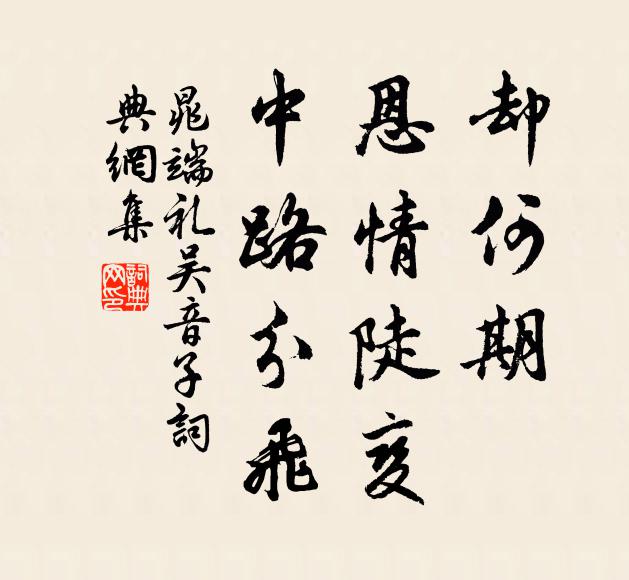 却何期
恩情陡变
中路分飛
晁端礼吴音子詞
典網集
詞典
网印